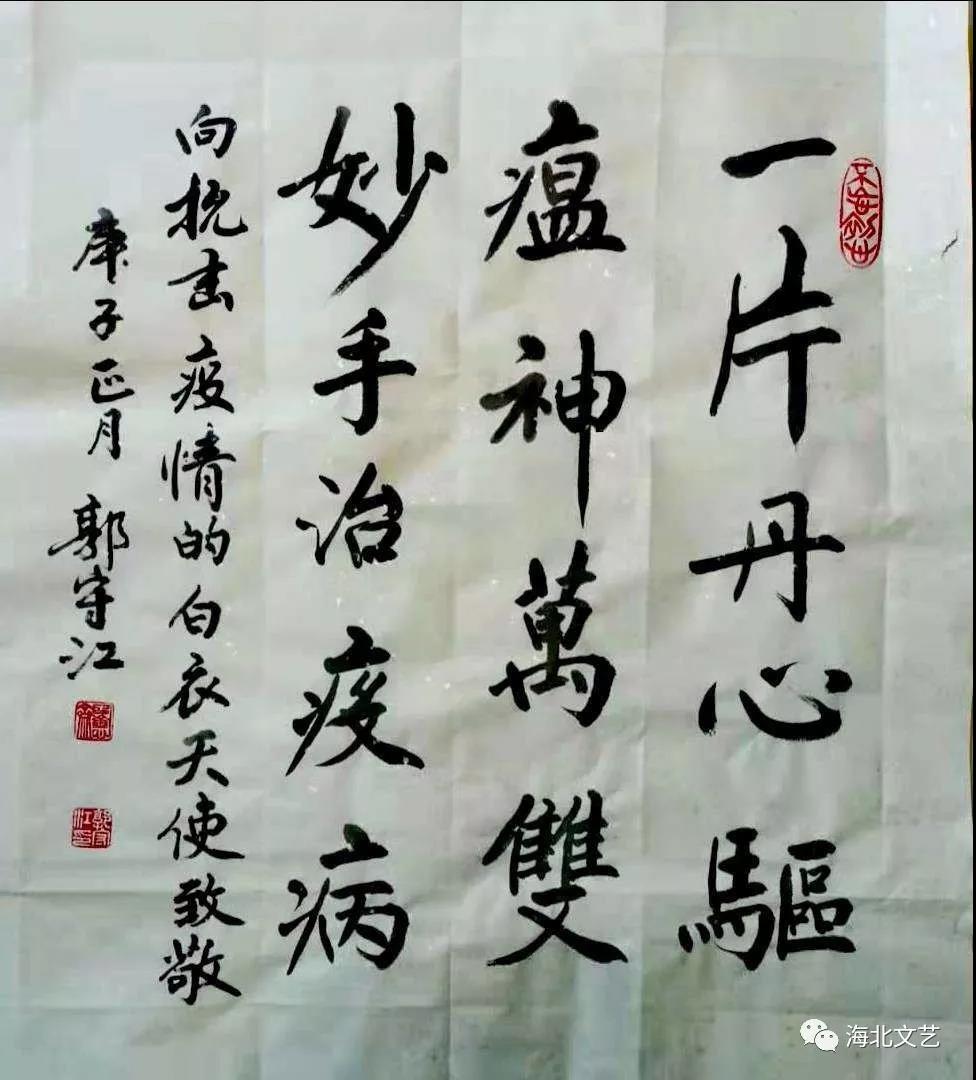 一片丹心驅
瘟神萬雙
妙手治疫病
向抗击疫情的白衣天使致敬
庚子正月 郭守江
海北文艺